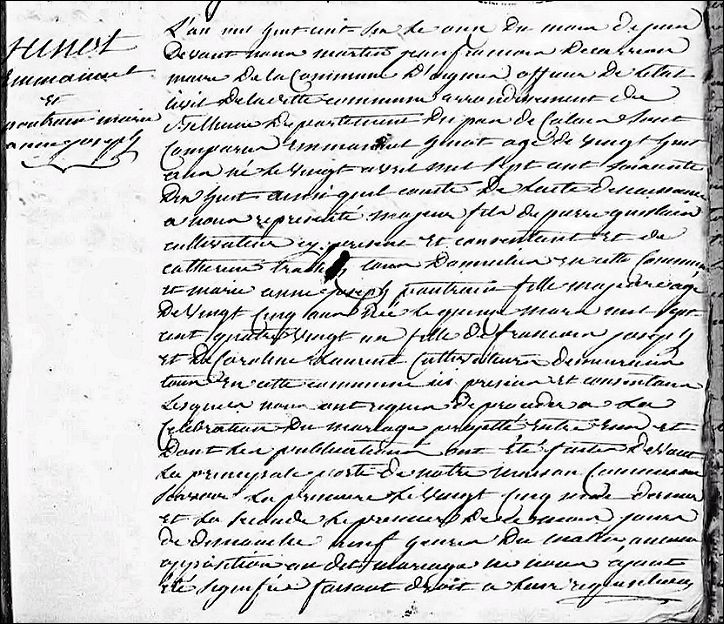 junot
Emmanuel
et
poutrain marie
anne joseph
L'an mil huit cent six le onze du mois de
Devant nous martin jean francois
maire De la Commune D'oignies officier De letat
civil De la ditte commune arrondissement de
Departement Du pas de Calais Sont
Comparus Emmanuel junot agé de vingt huit
ans né le vingt avril mil sept cent soixante
Dix huit ainsi quil conste De lacte de naissance
a nous representé majeur fils de pierre guislain
cultivateur cy present et consentant et de
catherine tous Domiciliés en cette Commune
et marie anne joseph poutrain fille majeure agé
De vingt cinq ans née le quinze mars mil sept
cent quatre vingt un fille de francois joseph
et de Caroline Laurent Cultivateurs demeurans
tous en cette commune ici presens et consentans
Lesquels nous ont requis De proceder a La
Celebration Du mariage projetté entre Eux et
Dont les publications ont été faites Devant
La principale porte de notre maison Commune
Scavoir La premiere le vingt cinq mai dernier
et La seconde le premier De ce mois jours
de dimanche neuf heures Du matin, aucune
opposition au dit mariage ne nous ayant
été signifiée faisant droit a leur requisition